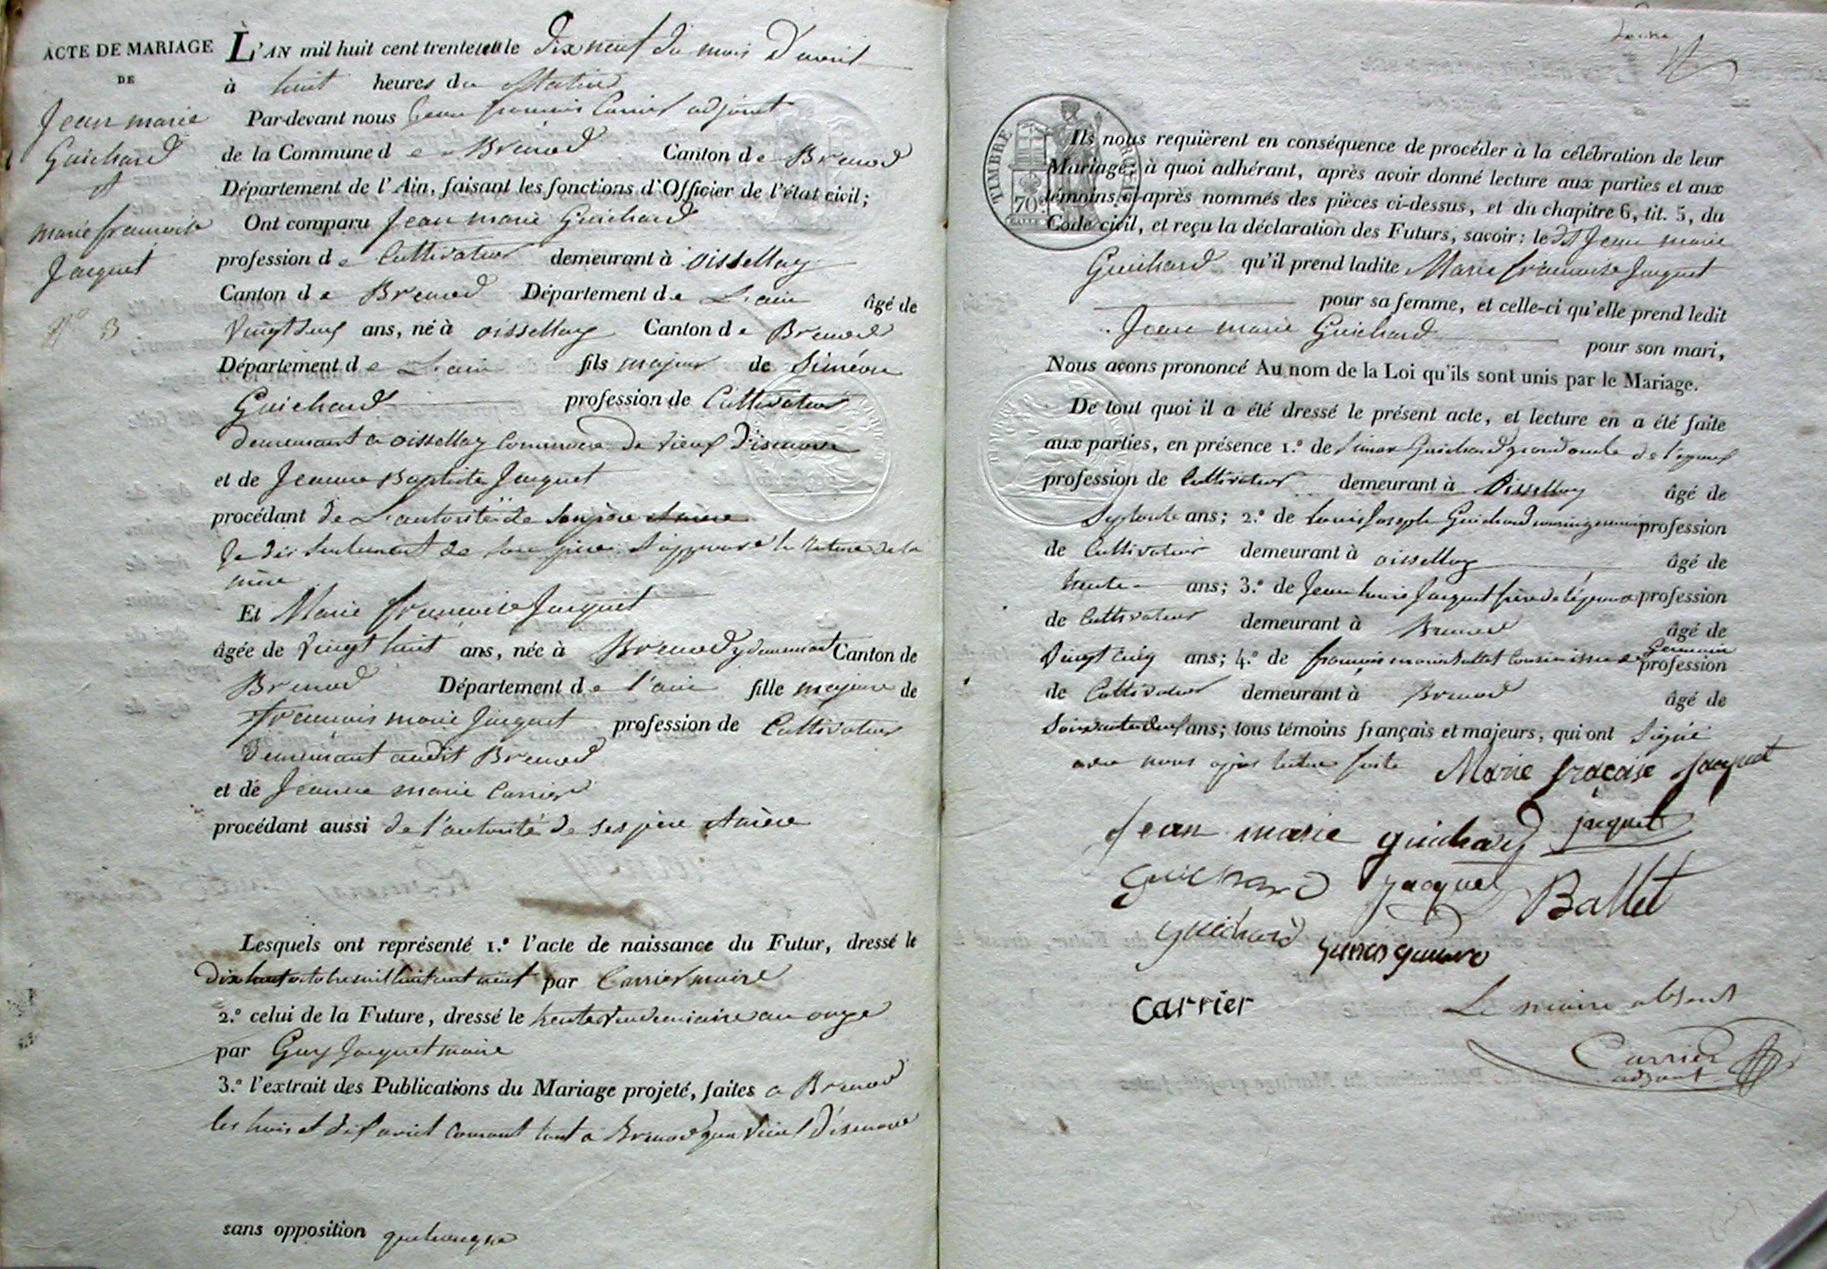 ACTE DE MARIAGE
DE
Jean marie
Guichard
et
marie francoise
Jacquet
N° 3
L'AN mil huit cent trente le dix neuf du mois d'avril
à huit heures du Matin
Par-devant nous Jean francois Carrier adjoint
de la Commune de Brenod Canton de Brenod
Département de l'Ain, faisant les fonctions d'Officier de l'état civil;
Ont comparu Jean marie Guichard
profession de Cultivateur demeurant à oissellaz
Canton de Brenod Département de L'ain âgé de
Vingt ans, né à oissellaz Canton de Brenod
Département de L'ain fils majeur de Siméon
Guichard profession de Cultivateur
demeurant a oissellaz commune de vieux d'isenave
et de Jeanne Baptiste Jacquet
procédant de L'autorité de son père & mère
Je dis seulement de son père & approuve la rature de la
mère
Et Marie francoise Jacquet
âgée de Vingt huit ans, née à Brenod y demeurant Canton de
Brenod Département de l'ain fille majeure de
francois marie Jacquet profession de Cultivateur
demeurant audit Brenod
et de Jeanne marie Carrier
procédant aussi de l'autorité de ses père & mère
Lesquels ont représenté 1.° l'acte de naissance du Futur, dressé le
dix huit octobre mil huit cent neuf par Carrier maire
2.° celui de la Future, dressé le trente vendemiaire an onze
par Guy Jacquet maire
3.° l'extrait des Publications du Mariage projeté, faites a Brenod
les trois et dix avril courant tant a Brenod que vieux d'isenave
sans opposition quelconque
TIMBRE ROYAL
70c
Ils nous requièrent en conséquence de procéder à la célébration de leur
Mariage; à quoi adhérant, après avoir donné lecture aux parties et aux
témoins ci-après nommés des pièces ci-dessus, et du chapitre 6, tit. 5, du
Code civil, et reçu la déclaration des Futurs, savoir: le dit Jean marie
Guichard qu'il prend ladite Marie francoise Jacquet
pour sa femme, et celle-ci qu'elle prend ledit
Jean marie Guichard pour son mari,
Nous avons prononcé Au nom de la Loi qu'ils sont unis par le Mariage.
De tout quoi il a été dressé le présent acte, et lecture en a été faite
aux parties, en présence 1.° de Guichard grand oncle de l'epoux
profession de Cultivateur demeurant à Oissellaz âgé de
Septante ans; 2.° de Louis Joseph Guichard cousin germain profession
de Cultivateur demeurant à oissellaz âgé de
trente ans; 3.° de Jean Louis Jacquet frère de l'épouse profession
de Cultivateur demeurant à Brenod âgé de
Vingt cinq ans; 4.° de françois marie Ballet cousin Germain profession
de Cultivateur demeurant à Brenod âgé de
Soixante deux ans; tous témoins français et majeurs, qui ont Signé
avec nous après lecture faite Marie fracoise jacquet
Jean marie guichard jacquet
Guichard jacquet Ballet
guichard
Carrier Le maire absent
Carrier
adjoint